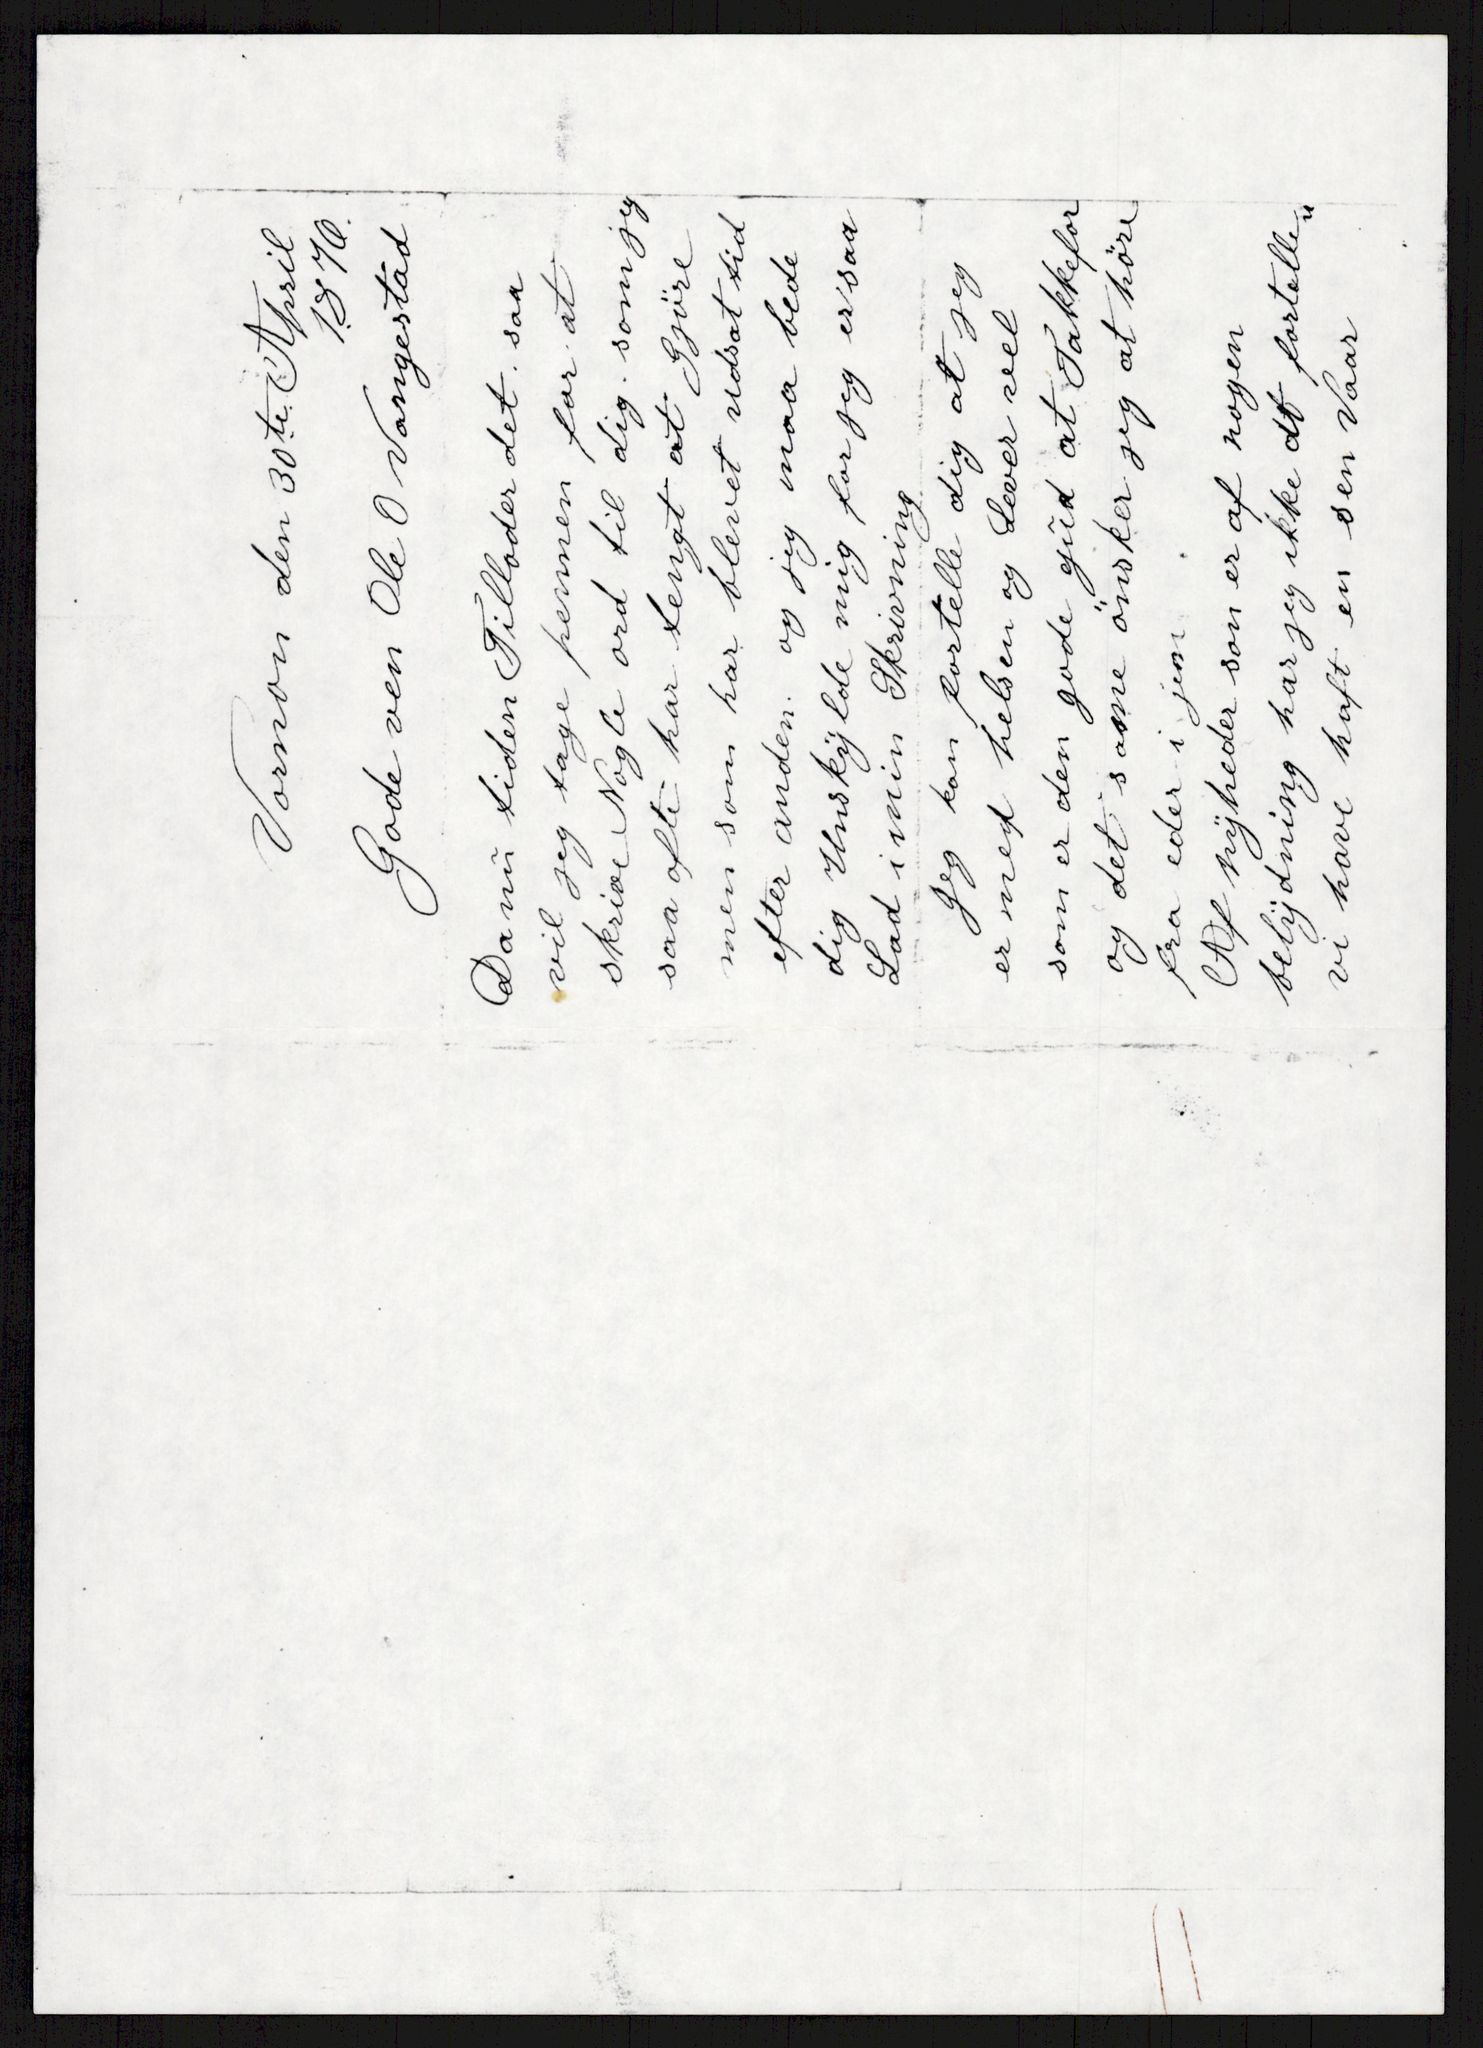 Vornon den 30te April
1876.
Gode ven Ole O Vangestad
Da nŭ tiden Tillader det. saa
vil jeg tage pennen for at
skrive Nogle ord til dig. som jeg
saa ofte har tengt at Gjöre
men som har blevet udsat tid
efter anden. og jeg maa bede
dig Unskÿlde mig for jeg er saa
Lad i min Skrivning
Jeg kan fortelle dig at jeg
er med helsen og Lever vel
som er den gode gŭd at Takke for
og det same önsker jeg at höre
fra eder i jem.
Af nÿheder som er af nogen
betÿdning har jeg ikke at fortelle"
vi have haft en sen Vaar